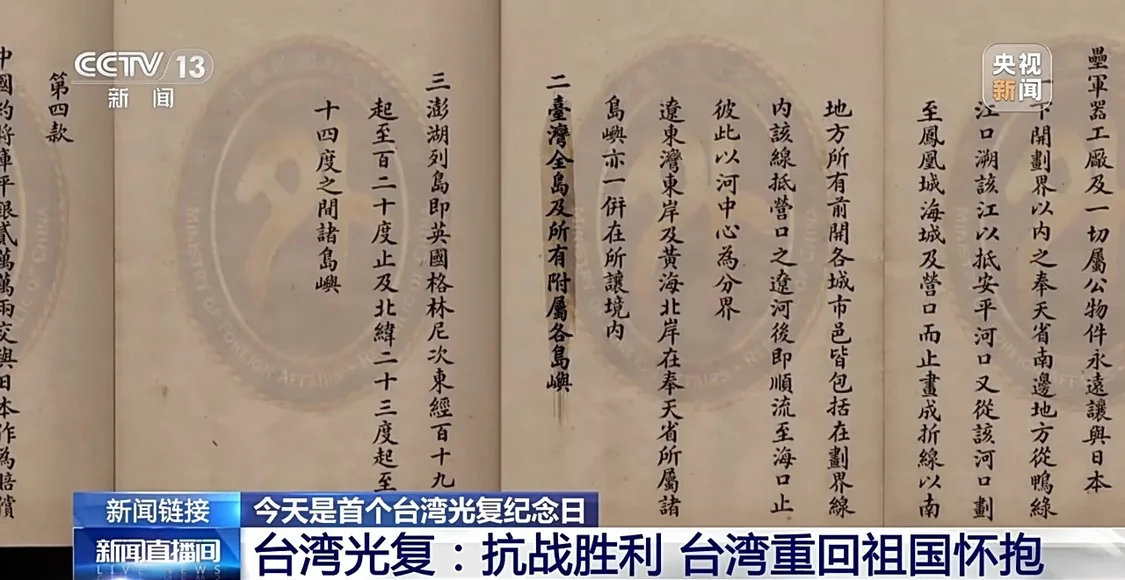 CCTV 13
新闻
央视
新闻
壘軍器工廠及一切屬公物件永遠讓與日本
下開劃界以內之奉天省南邊地方從鴨綠
江口溯該江以抵安平河口又從該河口劃
至鳳凰城海城及營口而止畫成折線以南
地方所有前開各城市邑皆包括在劃界線
內該線抵營口之遼河後即順流至海口止
彼此以河中心為分界
遼東灣東岸及黃海北岸在奉天省所屬諸
島嶼亦一併在所讓境內
二臺灣全島及所有附屬各島嶼
三澎湖列島即英國格林尼次東經百十九
起至百二十度止及北緯二十三度起至
十四度之間諸島嶼
第四款
中國約將庫平銀貳萬萬兩交與日本作為賠償
新闻链接
今天是首个台湾光复纪念日
新闻直播间
LIVE NEWS
台湾光复：抗战胜利 台湾重回祖国怀抱